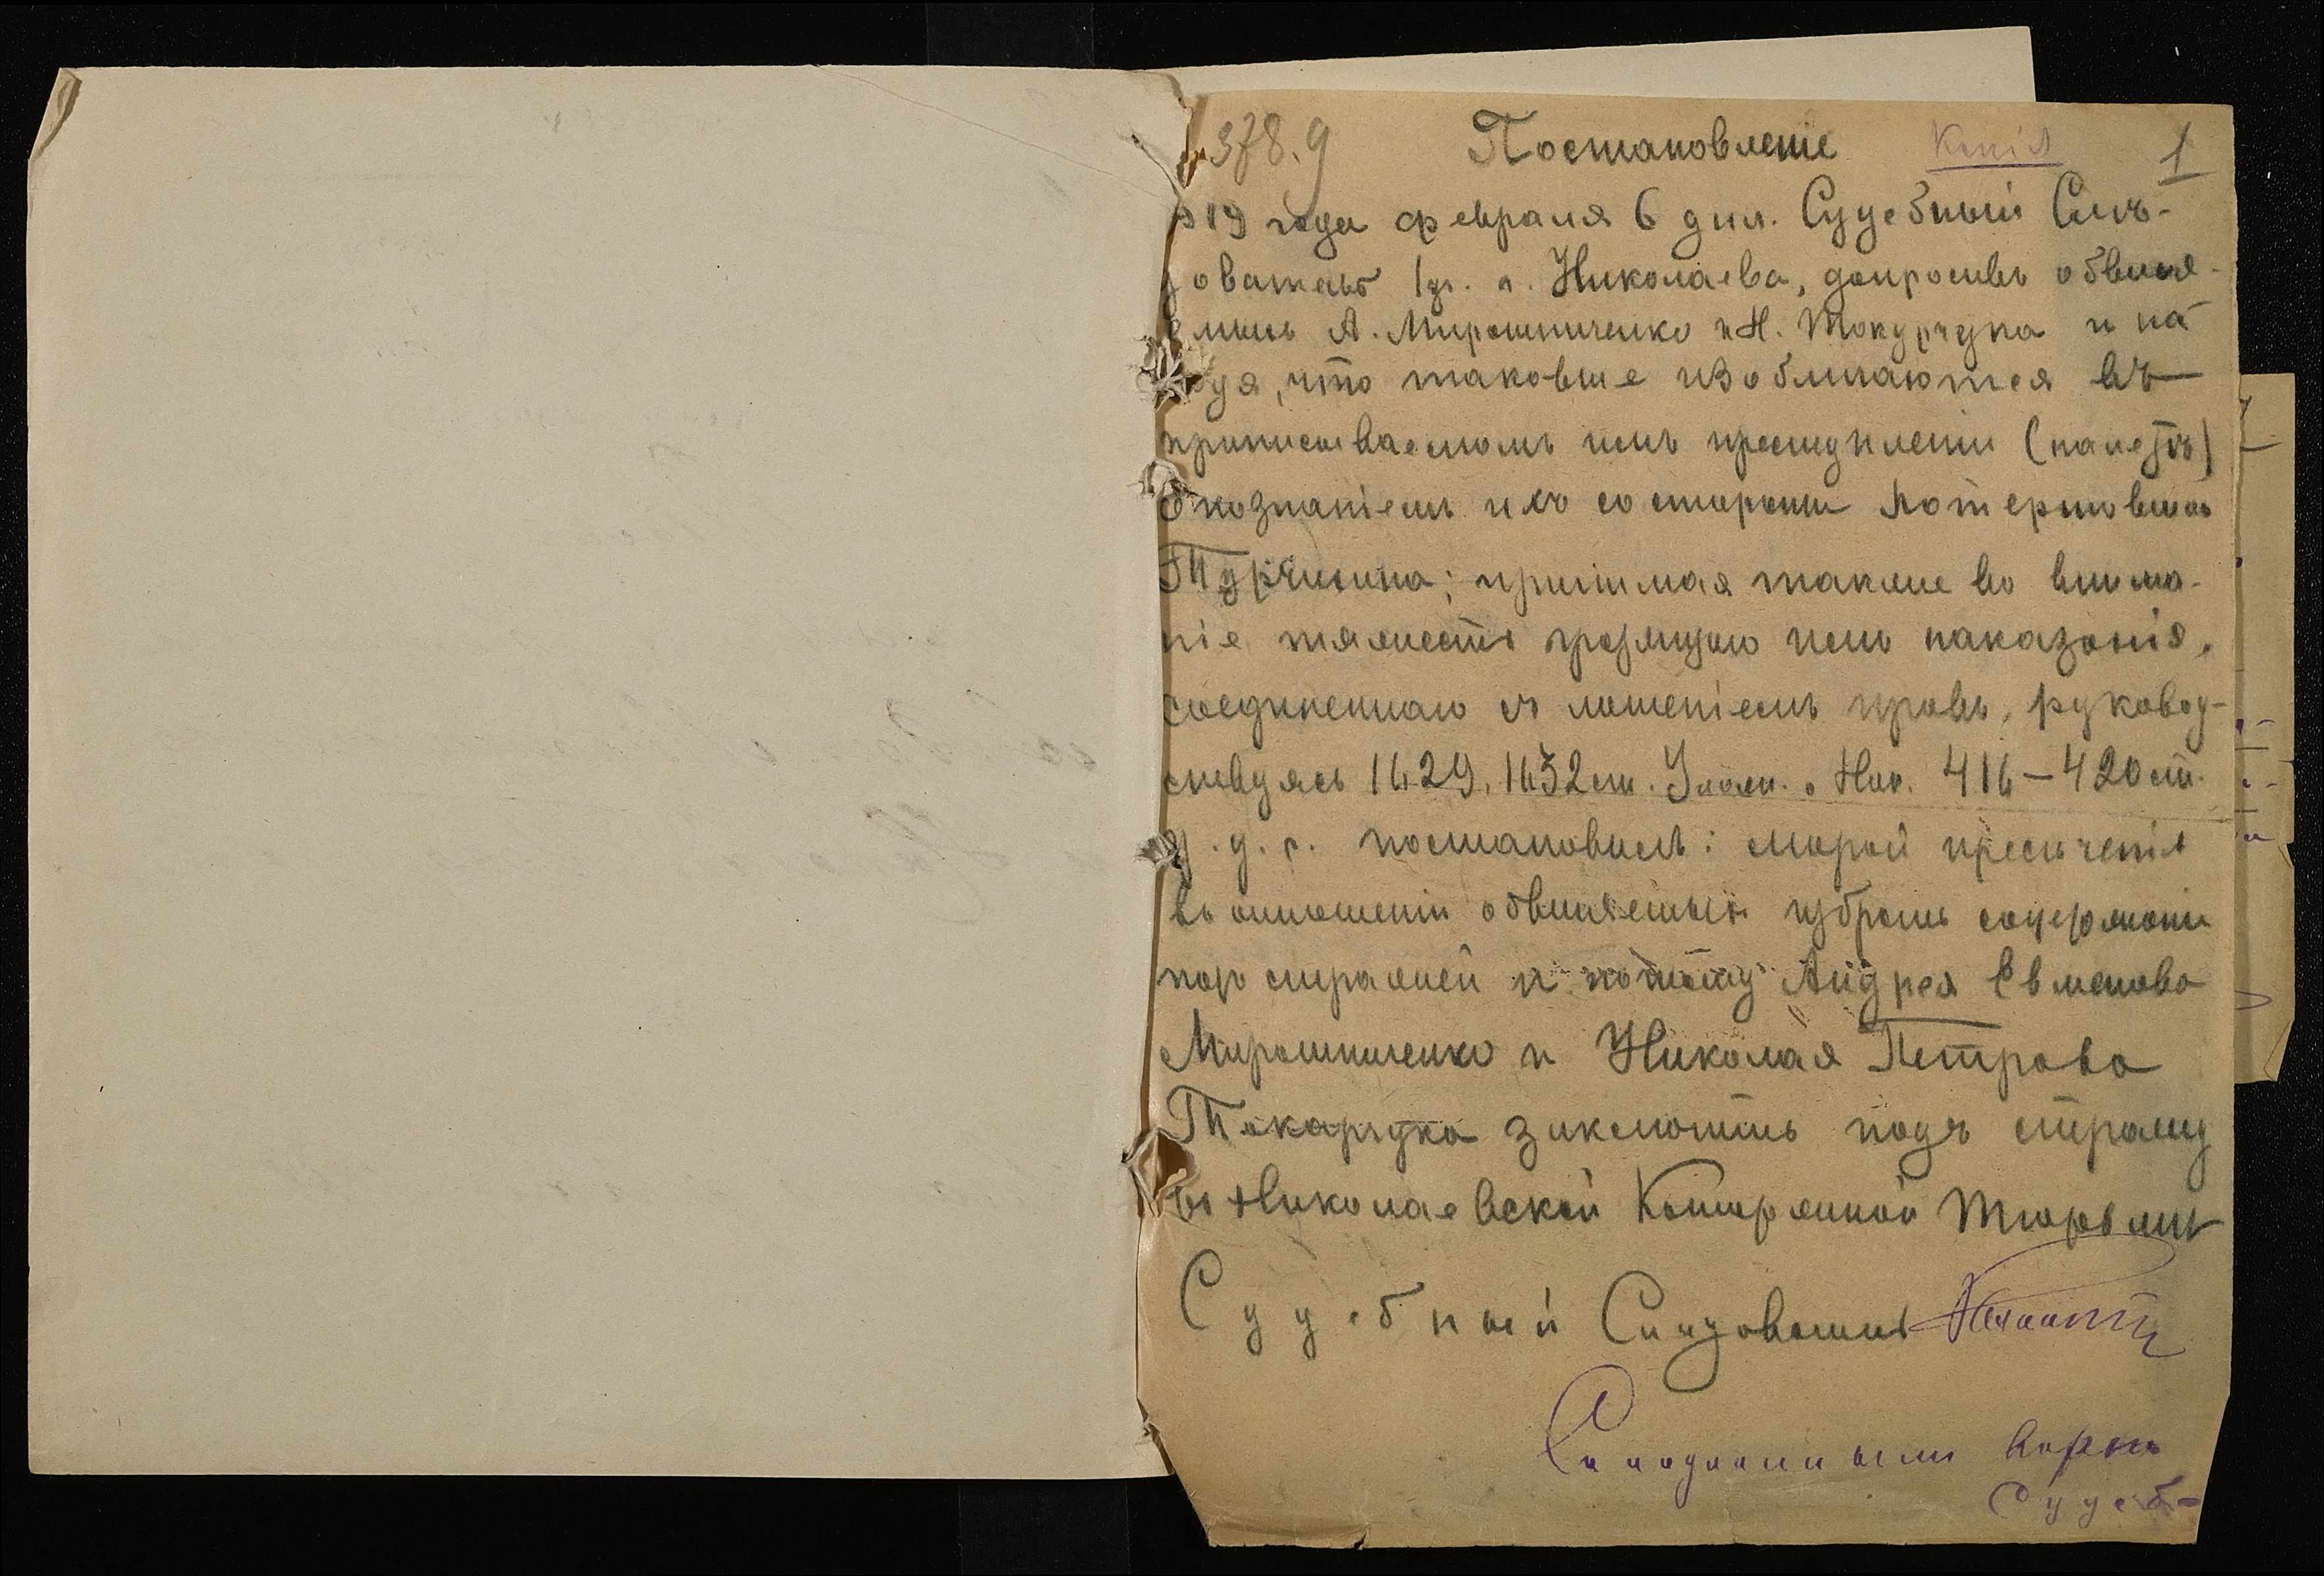 378.9 Постановленіе Копія 1
919 года февраля 6 дня. Судебный Слѣ-
дователь 1 уч. г. Николаева, допросивъ обвиня-
емыхъ А. Мирошниченко и Н. Токарчука и на
ходя, что таковые изобличаются въ
приписываемомъ имъ преступленіи (налетъ)
опознаніемъ ихъ со стороны потерпѣвшаго
Турчина; принимая также во внима-
ніе тяжесть грозящаго имъ наказанія,
соединеннаго съ лишеніемъ правъ, руковод-
ствуясь 1629, 1632 ст. Улож. о Нак. 416–420 ст.
у. у. с. постановилъ: мѣрой пресѣченія
въ отношеніи обвиняемыхъ избрать содержаніе
подъ стражей и потому Андрея Евменова
Мирошниченко и Николая Петрова
Токарчука заключить подъ стражу
въ Николаевской Каторжной тюрьмѣ
Судебный Слѣдователь
Съ подлиннымъ вѣрно
Судеб-